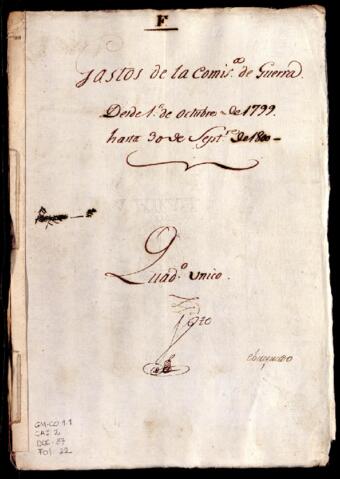 F
Gastos de la Comis.ª de Guerra.
Desde 1.º de Octubre de 1799.
hasta 30 de Sept.re de 1800
Quad.º Unico.
GM-CO 1.1
CAJ. 2
DOC. 87
FOL. 22